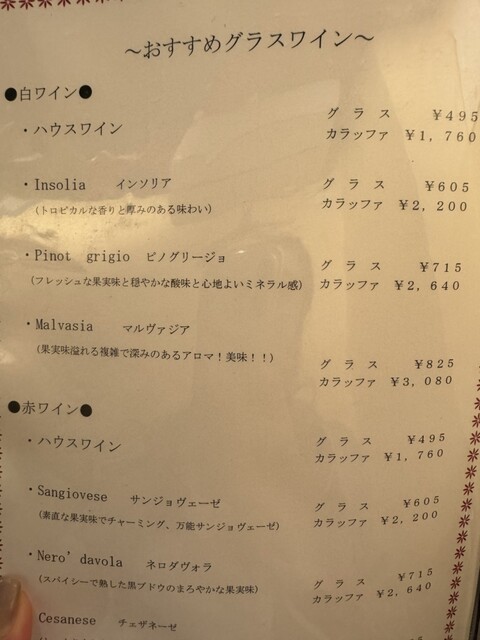 ～おすすめグラスワイン～
●白ワイン●
・ハウスワイン
グラス ￥495
カラッファ ￥1,760
・Insolia インソリア
グラス ￥605
(トロピカルな香りと厚みのある味わい)
カラッファ ￥2,200
・Pinot grigio ピノグリージョ
グラス ￥715
(フレッシュな果実味と穏やかな酸味と心地よいミネラル感)
カラッファ ￥2,640
・Malvasia マルヴァジア
(果実味溢れる複雑で深みのあるアロマ！美味！！)
グラス ￥825
カラッファ ￥3,080
●赤ワイン●
・ハウスワイン
グラス ￥495
カラッファ ￥1,760
・Sangiovese サンジョヴェーゼ
グラス ￥605
(素直な果実味でチャーミング、万能サンジョヴェーゼ)
カラッファ ￥2,200
・Nero'davola ネロダヴォラ
グラス ￥715
(スパイシーで熟した黒ブドウのまろやかな果実味)
カラッファ ￥2,640
Cesanese チェザネーゼ